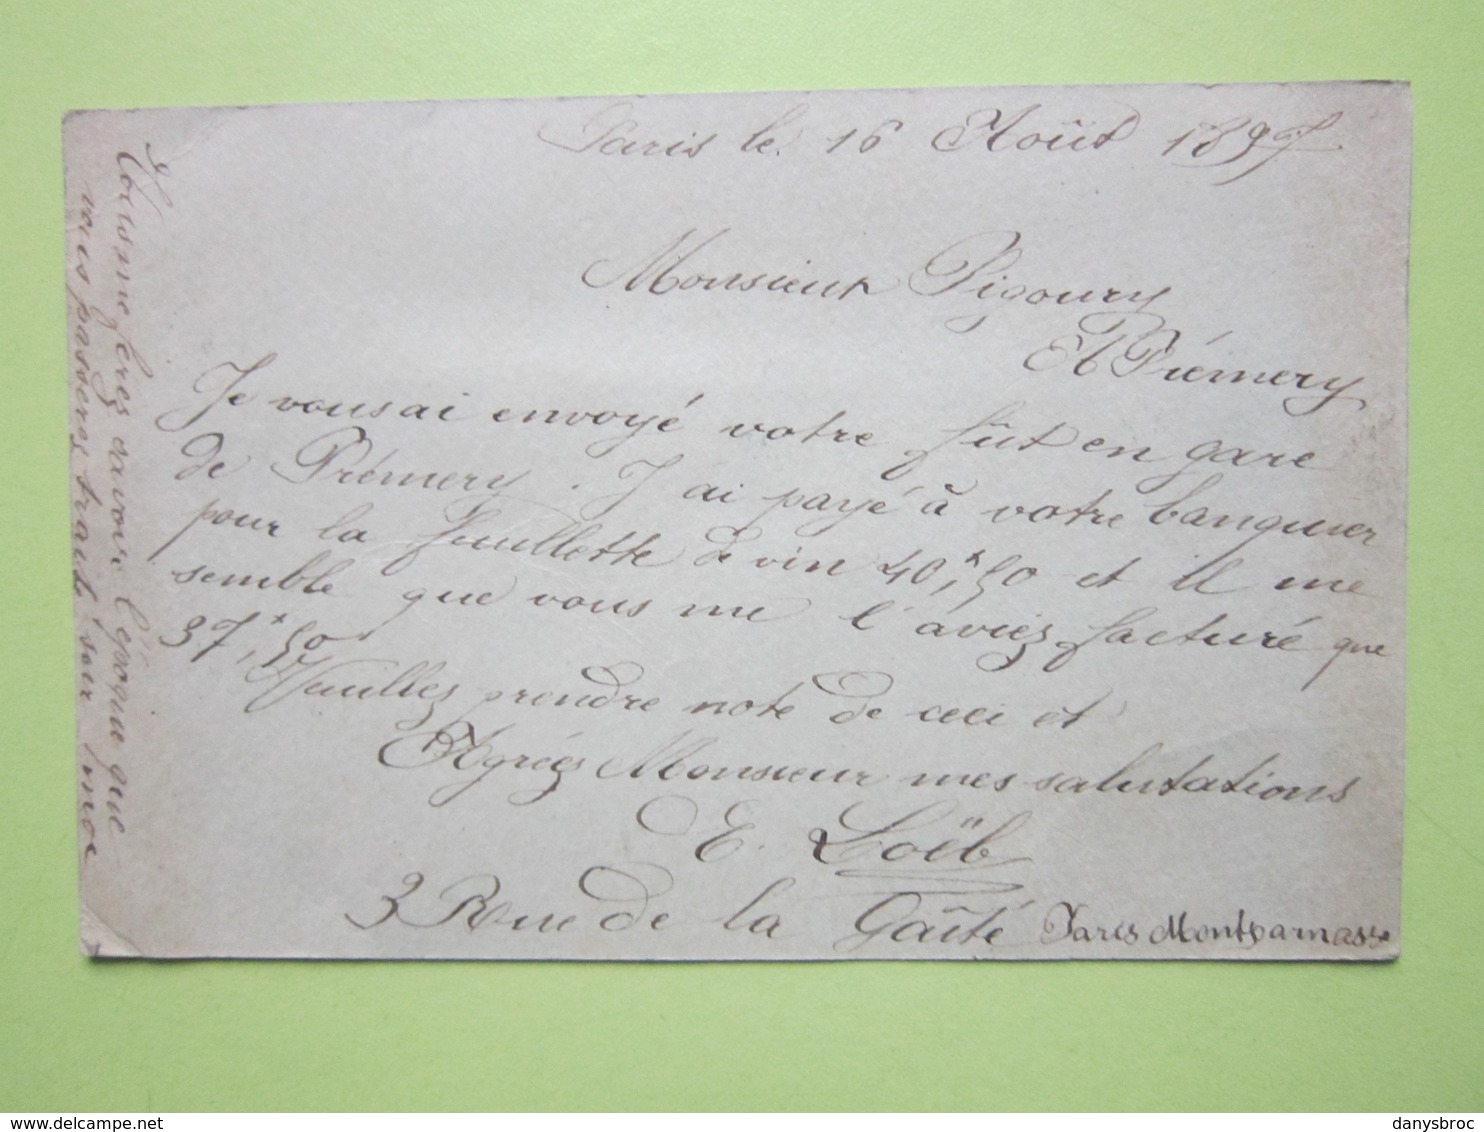 Paris le 16 Août 1897
Monsieur Pigoury
A Prémery
Je vous ai envoyé votre fût en gare
de Prémery. J'ai payé à votre banquier
pour la feuillette de vin 40,50 et il me
semble que vous me l'aviez facturé que
37,50
Veuillez prendre note de ceci et
Agréez Monsieur mes salutations
E. Loëb
3 Rue de la Gaîté Paris Montparnasse
Vous me ferez savoir l'époque que
vous passerez traite soir moi
danysbroc